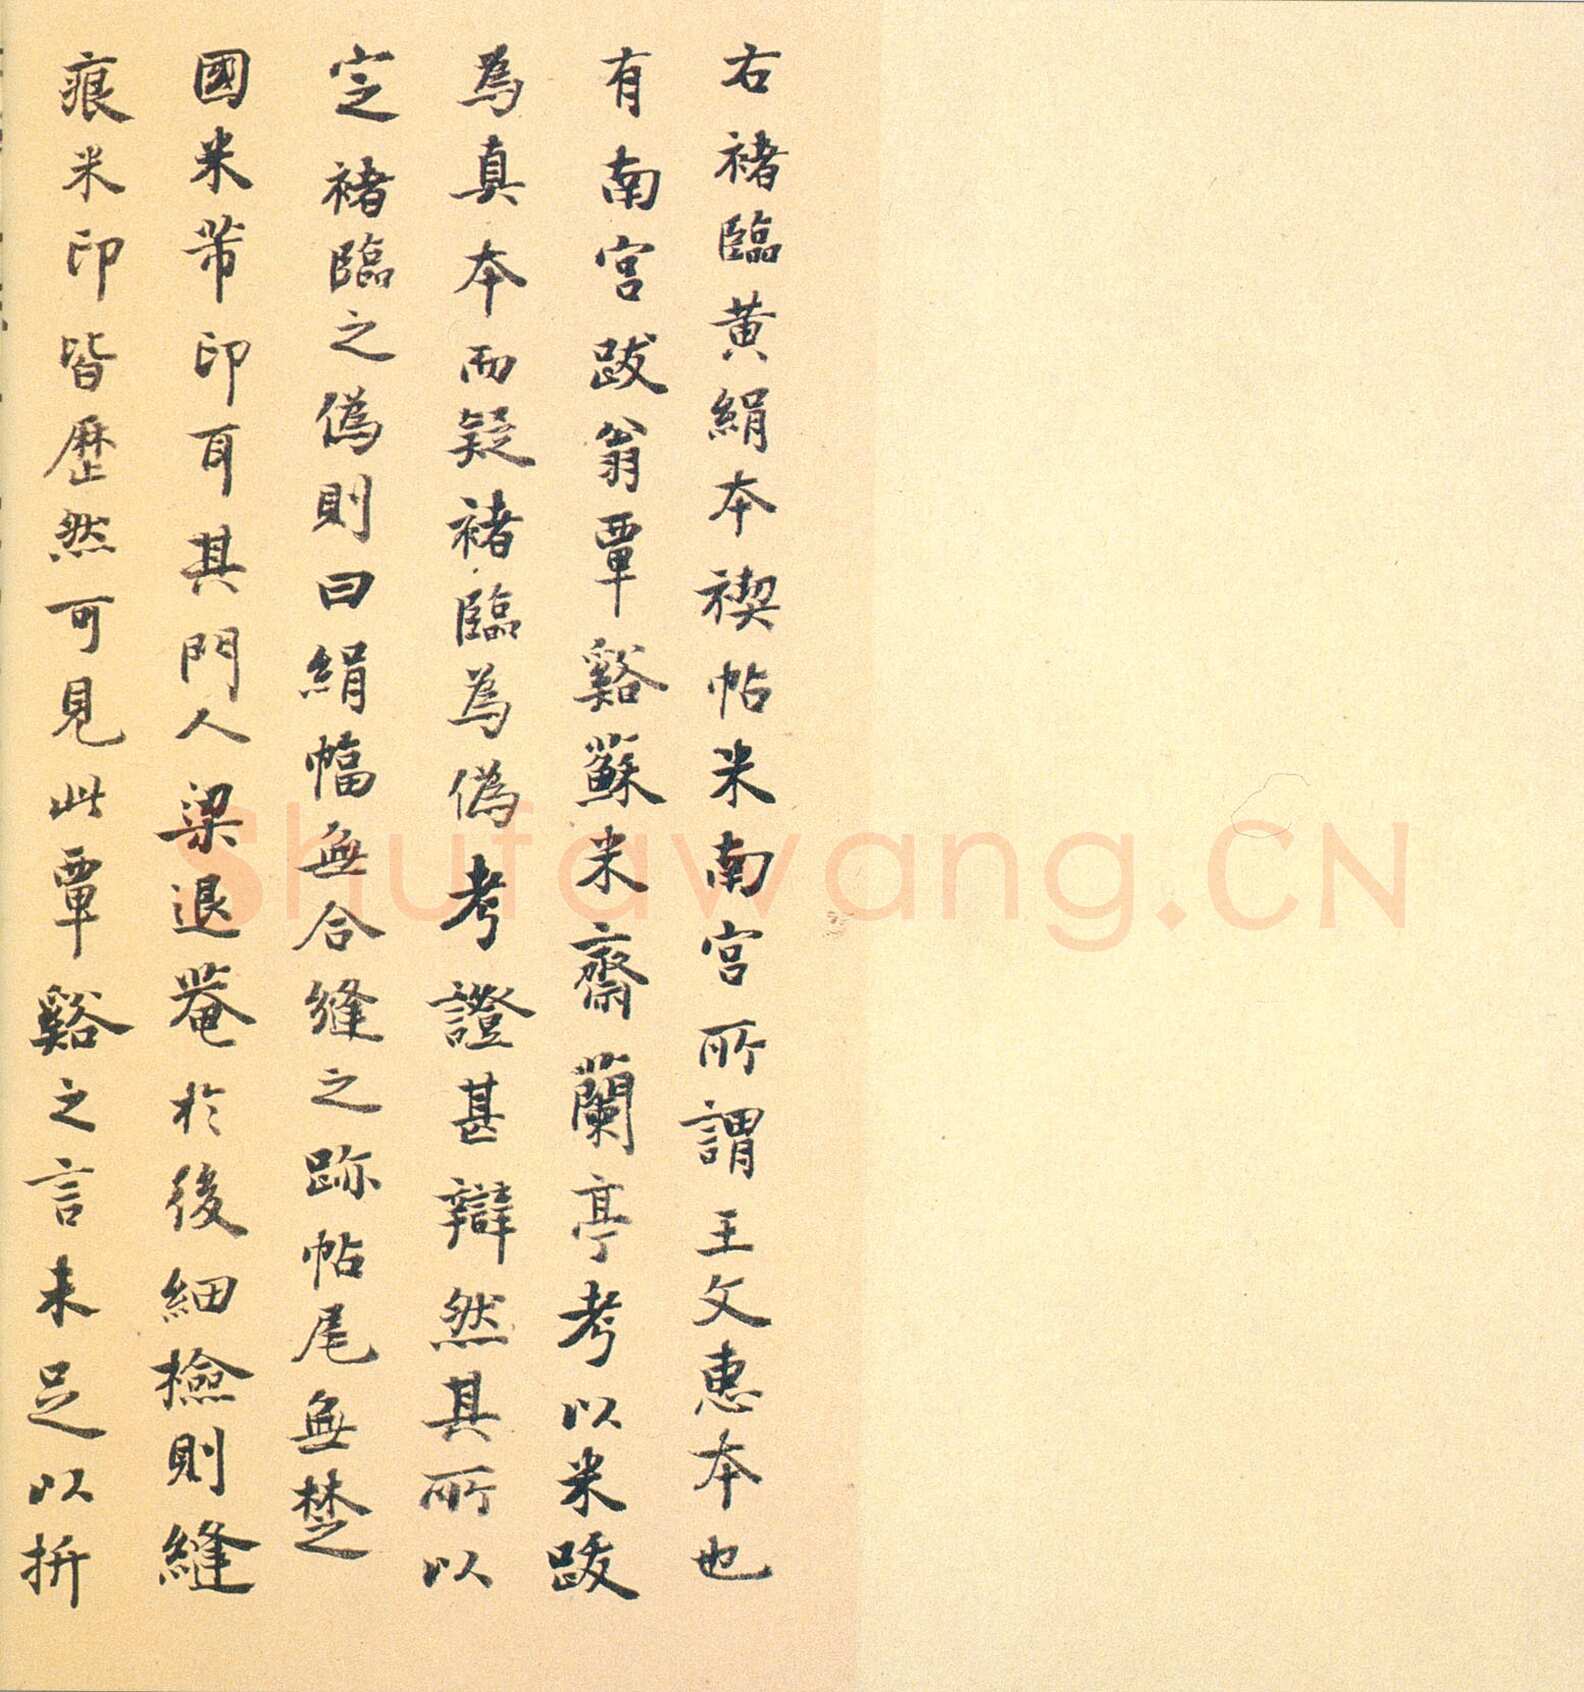 右褚臨黄絹本禊帖米南宫所謂王文惠本也
有南宫跋翁覃谿蘇米齋蘭亭考以米跋
為真本而疑褚臨為偽考證甚辯然其所以
定褚臨之偽則曰絹幅無合縫之跡帖尾無楚
國米芾印耳其門人梁退菴於後細撿則縫
痕米印皆歷然可見此覃谿之言未足以折
shufawang.CN